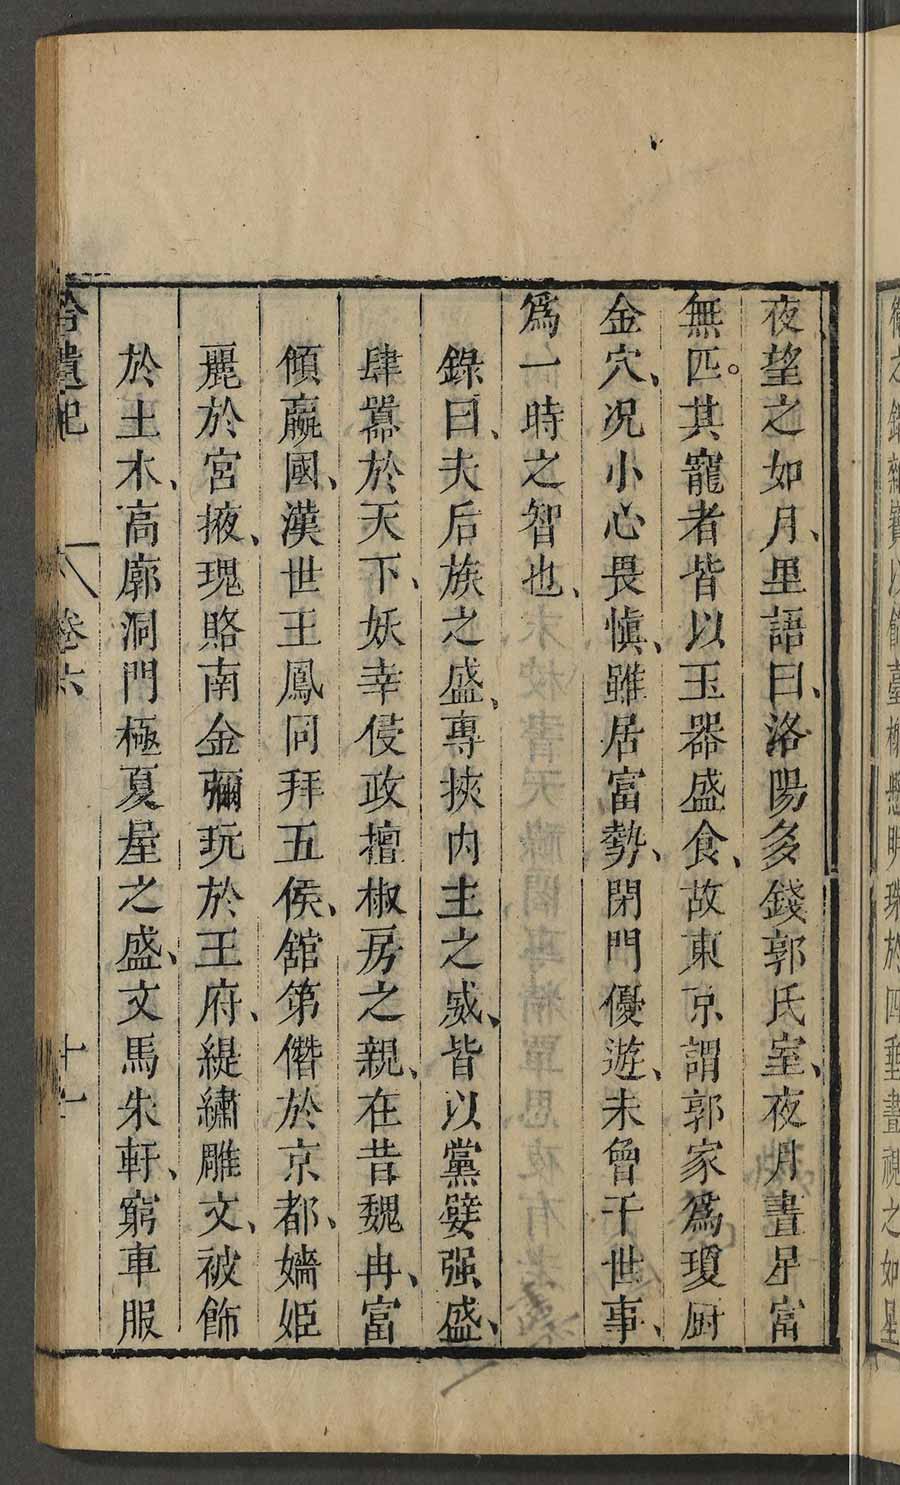 衛之錯雜寶以飾臺榭懸明珠於四垂晝視之如星
夜望之如月、里語曰、洛陽多錢郭氏室、夜月晝星富
無匹。其寵者皆以玉器盛食、故東京謂郭家爲瓊厨
金穴、况小心畏愼、雖居富勢、閉門優遊、未曾干世事、
爲一時之智也、
錄曰、夫后族之盛、專挾内主之威、皆以黨嬖强盛、
肆嚣於天下、妖幸侵政擅椒房之親、在昔魏冉、富
傾嬴國、漢世王鳳同拜五侯、舘第僭於京都、嬙姬
麗於宮掖、瑰賂南金彌玩於王府、緹繡雕文、被飾
於土木、高廓洞門極夏屋之盛、文馬朱軒、窮車服
拾遺記 卷六 十一